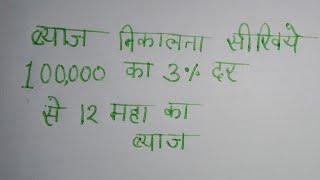 ब्याज निकालना सीखिये
100,000 का 3% दर
से 12 महा का
ब्याज